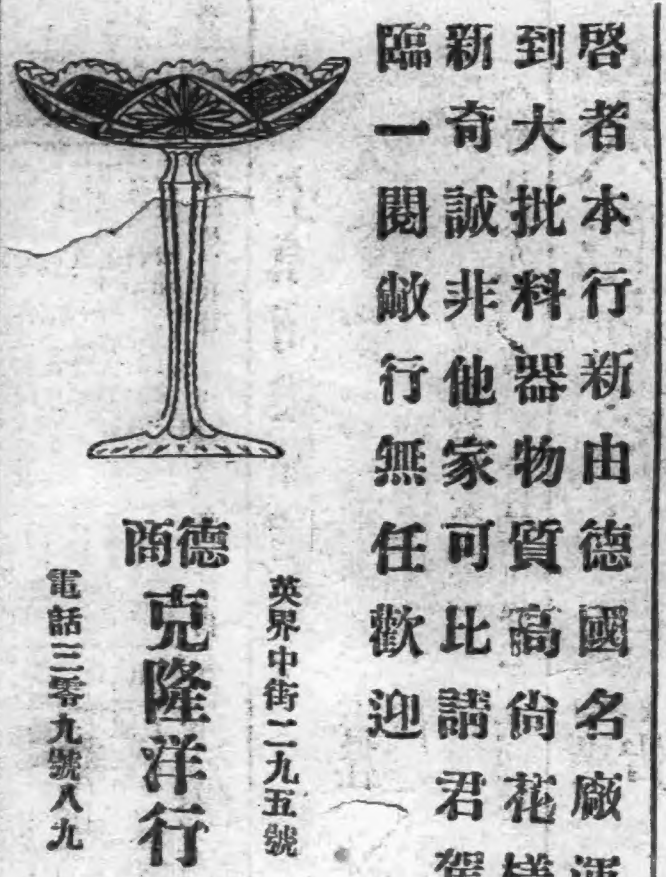 啓者本行新由德國名廠運
到大批料器物質高尚花樣
新奇誠非他家可比請君駕
臨一閱敝行無任歡迎
英界中街二九五號
德商
克隆洋行
電話三零九號八九